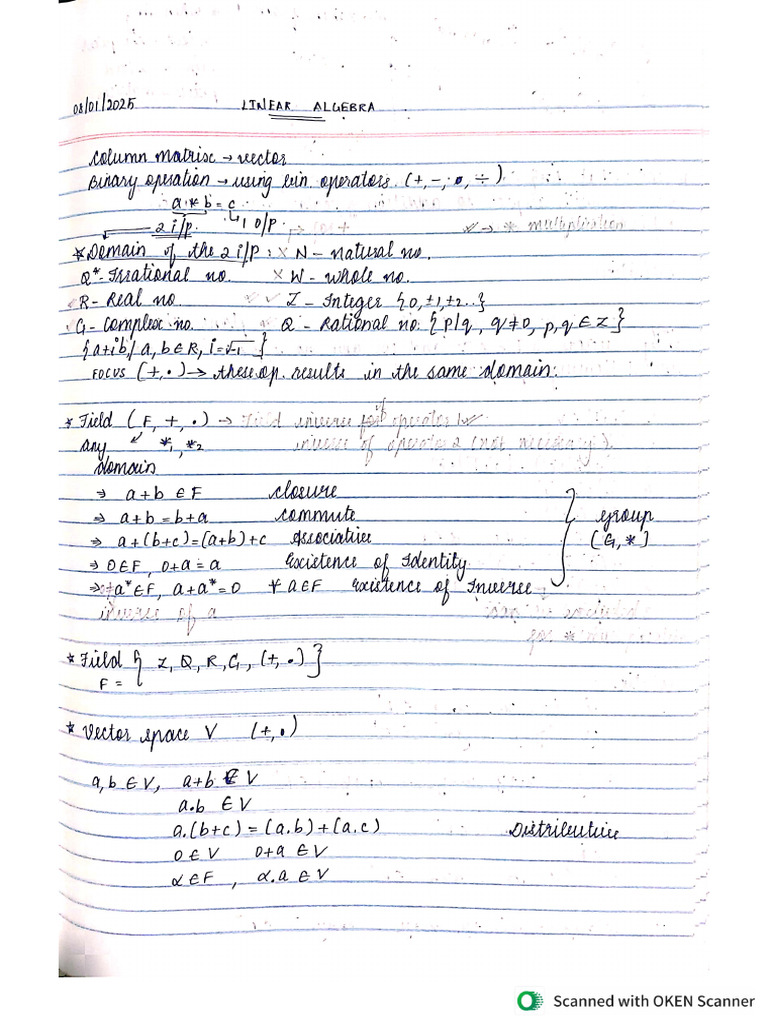 08/01/2025 LINEAR ALGEBRA
Column matrix → vector
Binary operation → using bin operators (+, -, •, ÷)
a * b = c
2 i/p. ↳ 1 O/P → * multiplication
* Domain of the 2 i/p : × N - natural no.
Q* - Irrational no. × W - whole no.
R - Real no ✓ Z - Integer {0, ±1, ±2..}
G - Complex no. Q - Rational no. {p/q, q≠0, p,q ∈ Z}
{a+ib / a, b ∈ R, i = √-1}
FOCUS (+, •) → these op. results in the same domain.
* Field (F, +, •) → Field inverse if for operator 1 ✓
any *₁, *₂ inverse of operator 2 (not necessary).
domain
⇒ a+b ∈ F closure
⇒ a+b = b+a commute group
⇒ a+(b+c) = (a+b)+c Associative (G, *]
⇒ 0 ∈ F, 0+a = a Existence of Identity
⇒ a* ∈ F, a+a* = 0 ∀ a ∈ F Existence of Inverse
inverse of a
for *
* Field { Z, Q, R, G, (+, •) }
F =
* Vector space V (+, •)
a, b ∈ V, a+b ∈ V
a.b ∈ V
a.(b+c) = (a.b)+(a.c) Distributive
0 ∈ V 0+a ∈ V
α ∈ F , α.a ∈ V
Scanned with OKEN Scanner